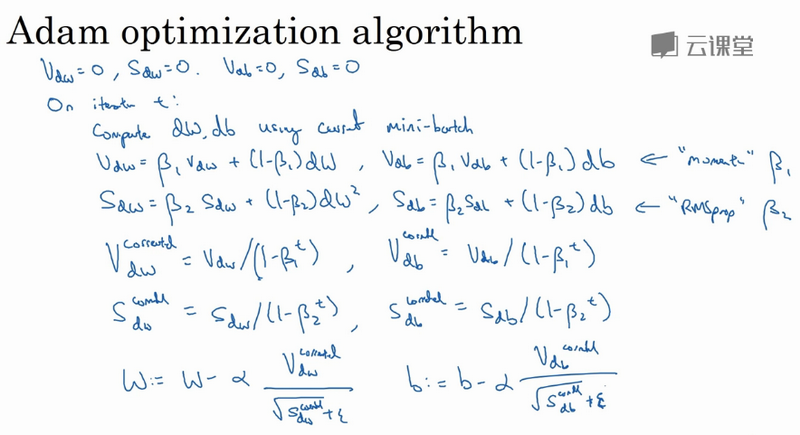 Adam optimization algorithm
云课堂
V_dw = 0, S_dw = 0. V_db = 0, S_db = 0
On iteration t:
Compute dW, db using current mini-batch
V_dw = β₁ V_dw + (1-β₁) dW , V_db = β₁ V_db + (1-β₁) db ← "momentum" β₁
S_dw = β₂ S_dw + (1-β₂) dW² , S_db = β₂ S_db + (1-β₂) db ← "RMSprop" β₂
V_dw^corrected = V_dw / (1-β₁^t) , V_db^corrected = V_db / (1-β₁^t)
S_dw^corrected = S_dw / (1-β₂^t) , S_db^corrected = S_db / (1-β₂^t)
W := W - α V_dw^corrected / (√S_dw^corrected + ε) b := b - α V_db^corrected / (√S_db^corrected + ε)